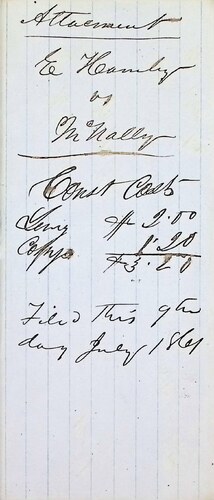 Attacment
E Hamby
vs
McNally
Const Costs
Levy $ 2.00
Copy 1.20
$3.20
Filed this 9th
day July 1861